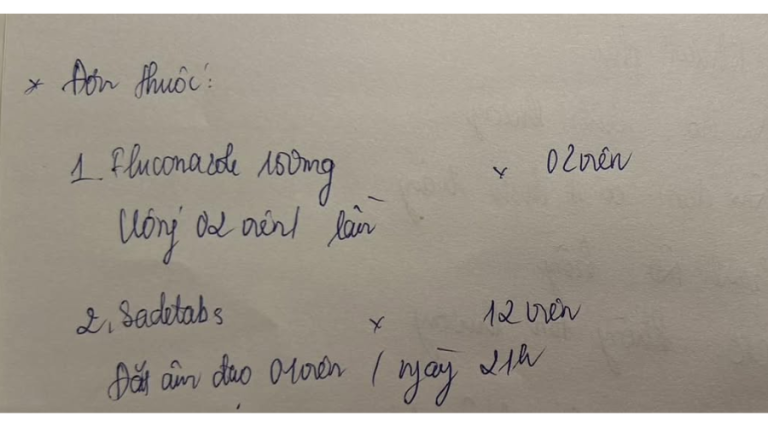 * Đơn thuốc:
1. Fluconazole 150mg x 02 viên
Uống 02 viên/ lần
2. Sadetabs x 12 viên
Đặt âm đạo 01 viên / ngày 21h